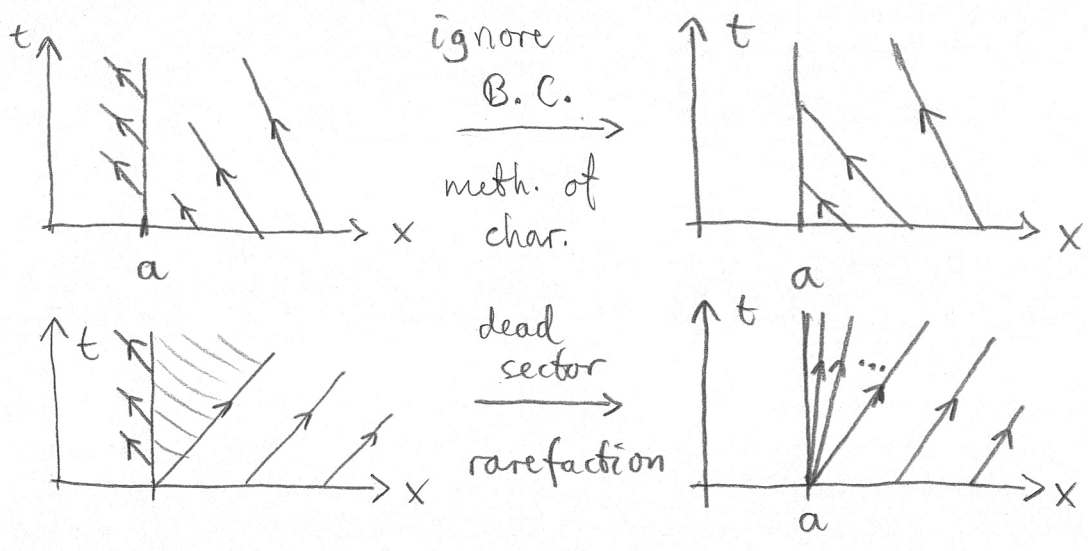 t
x
a
ignore
B. C.
meth. of
char.
t
x
a
t
x
dead
sector
rarefaction
t
...
x
a